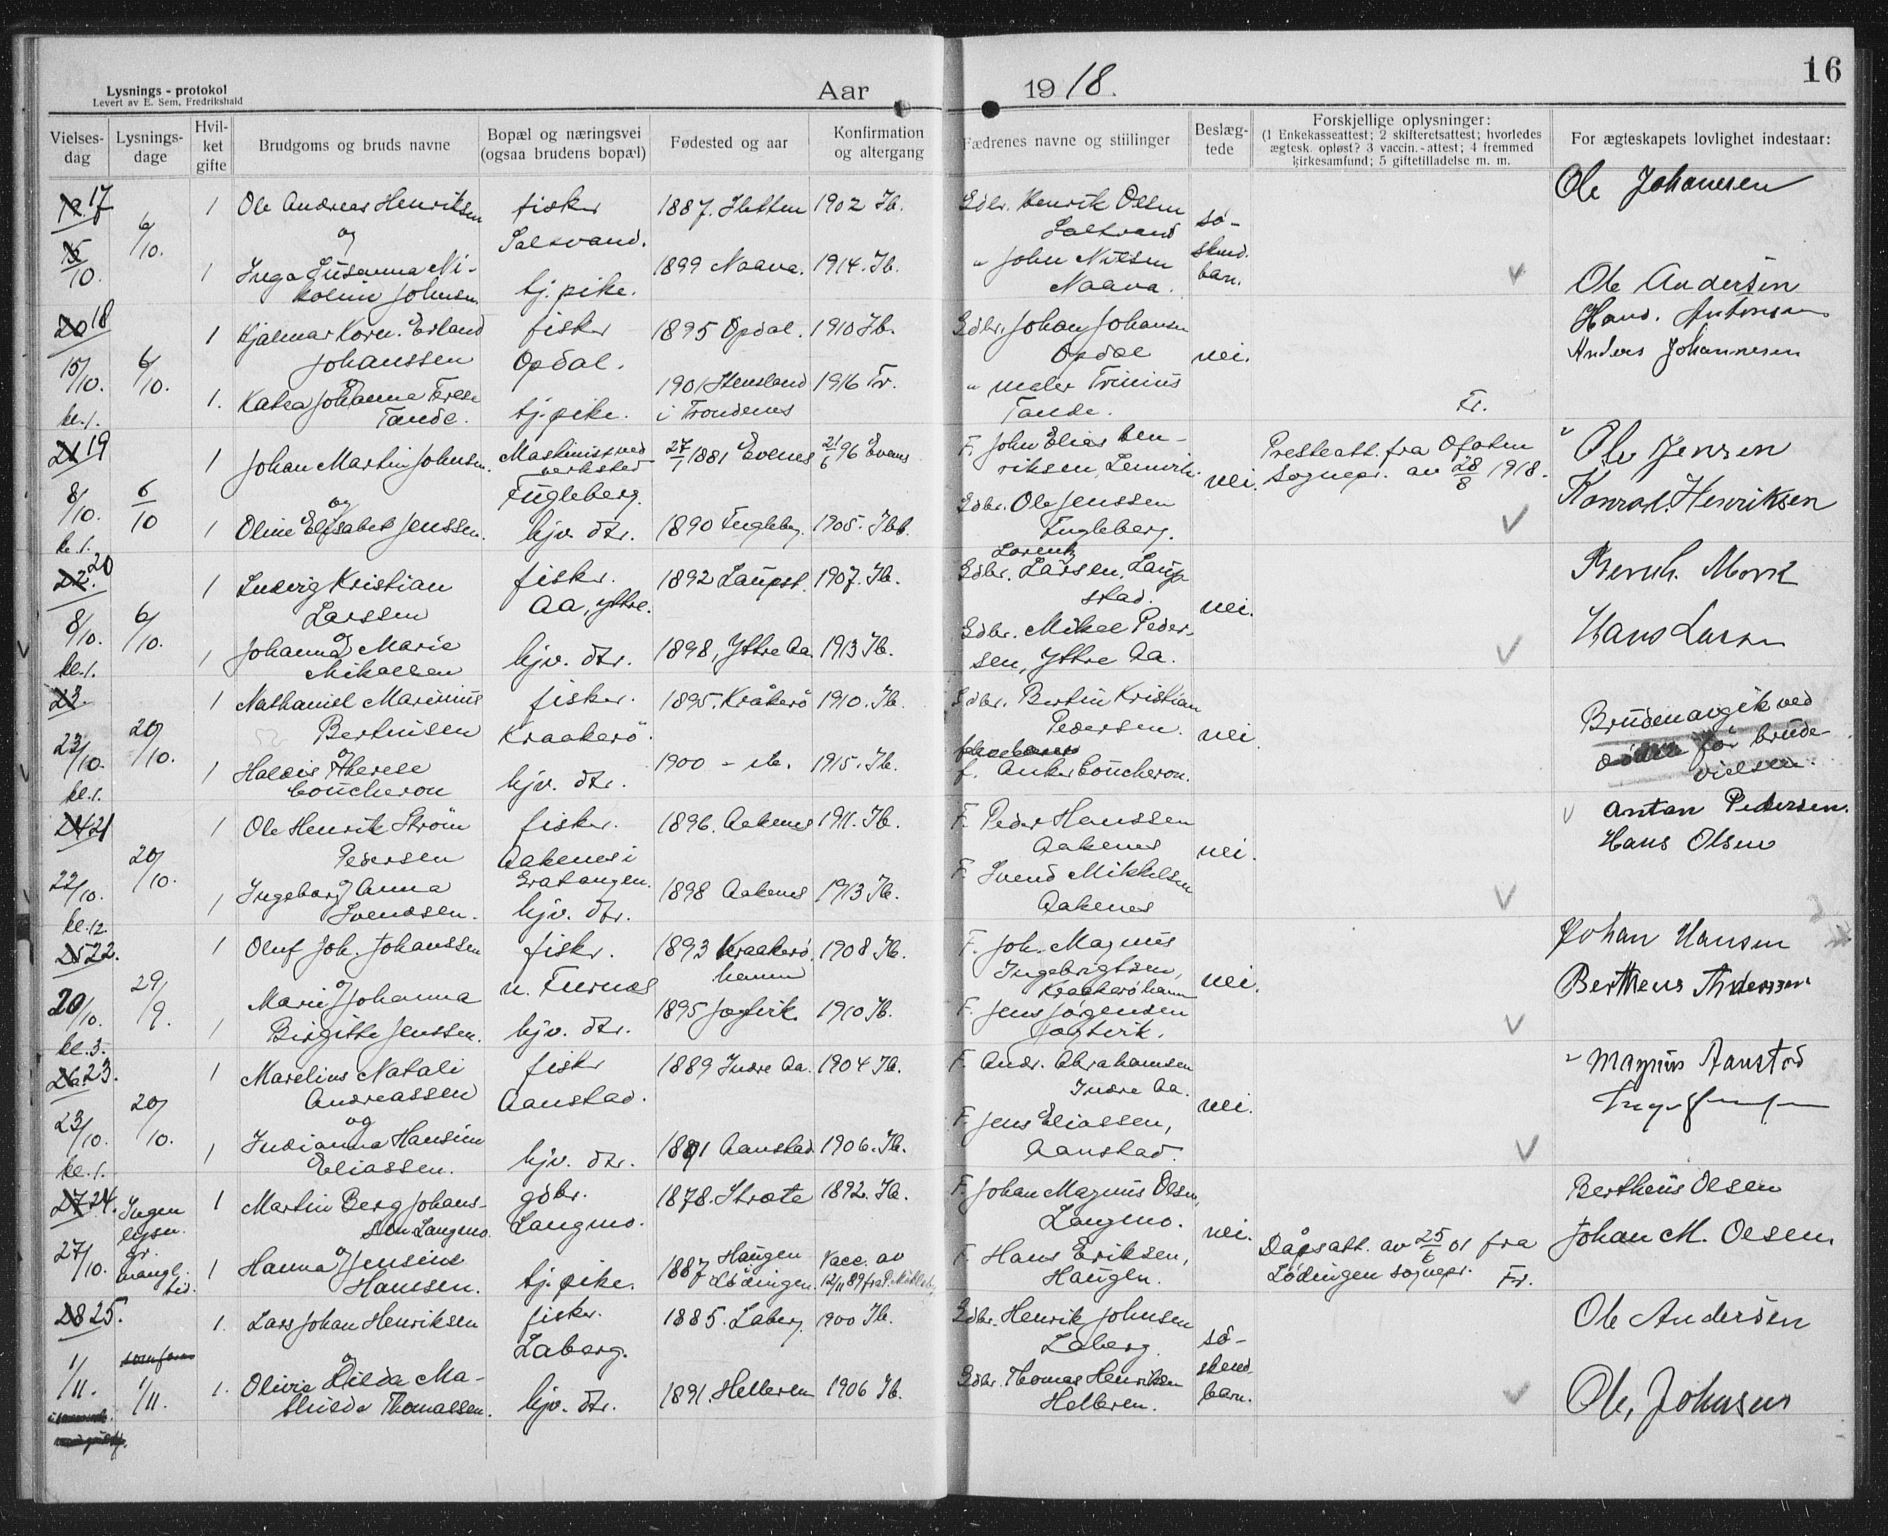 Lysnings - protokol
Levert av E. Sem, Fredrikshald
Aar 1918.
16
Vielses-dag
Lysnings-dage
Hvil-ket gifte
Brudgoms og bruds navne
Bopæl og næringsvei (ogsaa brudens bopæl)
Fødested og aar
Konfirmation og altergang
Fædrenes navne og stillinger
Beslæg-tede
Forskjellige oplysninger:
(1 Enkekasseattest; 2 skifteretsattest; hvorledes ægtesk. opløst? 3 vaccin.-attest; 4 fremmed kirkesamfund; 5 giftetilladelse m. m.
For ægteskapets lovlighet indestaar:
17
15/10.
6/10.
1 Ole Andreas Henriksen
og
fisker
Saltvand.
1887. 1902 Ib.
Gdbr. Henrik Olsen
Saltvand
sø-
skend.
barn.
Ole Johanesen
1 Inga Susanna Ni-
koline Johnsen
tj. pike.
1899 Naava. 1914. Ib.
" John Nilsen
Naava.
Ole Andersen
18
15/10.
kl. 1.
6/10.
1 Hjalmar Korn. Erland
Johanssen
fisker
Opdal.
1895 Opdal. 1910 Ib.
Gdbr. Johan Johansen
Opdal
nei.
Hans. Antonsen
Anders Johannesen
1. Katra Johanna Terese
Tande.
tj. pike.
1901 Stensland
i Trondenes
1916 Tr.
" maler Trinius
Tande.
Fr.
19
8/10.
kl. 1.
6/10
1 Johan Martin Johnsen.
og
Maskinist ved
verksted
Fugleberg.
27/1 1881 Evenes 21/6 96 Evenes
F. John Elias Hen-
riksen, Lenvik.
nei.
Presteatt. fra Ofoten
Sognepr. av 28/8 1918.
Ole Jensen
1 Oline Elisabet Jenssen.
hjv. dtr.
1890 Fugleberg. 1905. Ib.
Gdbr. Ole Jenssen
Fugleberg.
Konrad. Henriksen
20
8/10.
kl. 1.
6/10.
1 Ludvig Kristian
Larssen
og
fisker.
Aa, ytre.
1892 Laupst. 1907. Ib.
Lorentz
Gdbr. Larsen, Laup-
stad.
nei.
Bernh. Mork
1 Johanna Marie
Mikalsen
hjv. dtr.
1898, Yttre Aa. 1913 Ib.
Gdbr. Mikal Peder-
sen, Yttre Aa.
Hans Larsen
23.
23/10.
kl. 1.
20/10.
1 Nathaniel Marinius
Bertinsen
og
fisker.
Kraakerö.
1895. Kråkerö 1910. Ib.
Gdbr. Bertin Kristian
Pedersen.
nei.
Bruden avgik ved
döden før brude-
vielsen.
1 Haldis Therese
Coucheron
hjv. dtr.
1900 - ib. 1915. Ib.
f. Anker Coucheron.
21
22/10.
kl. 12.
20/10.
1 Ole Henrik Strøm
Pedersen
og
fisker.
Aakenes i
Gratangen.
1896. Aakenes 1911. Ib.
F. Peder Hanssen
Aakenes
nei.
Anton Pedersen.
Hans Olsen
1 Ingeborg Anna
Svendsen.
hjv. dtr.
1898 Aakenes 1913 Ib.
F. Svend Mikkelsen
Aakenes
22.
20/10.
kl. 3.
29/9.
1 Oluf Joh. Johanssen
og
fisker.
n. Furnes
1893 Kraakerö
havn
1908 Ib.
F. Joh. Magnus
Ingebrigtsen,
Kraakeröhavn
nei.
Johan Hansen
1 Marie Johanna
Birgitte Jenssen.
hjv. dtr.
1895 1910 Ib.
F. Jens Jørgensen
Bertheus Andersen
23.
23/10.
kl. 1.
20/10.
1 Marelius Natali
Andreassen
og
fisker
Aanstad.
1889 Indre Aa. 1904 Ib.
F. Andr. Abrahamsen
Indre Aa.
nei.
Magnus Aanstad
1 Indianna Hansine
Eliassen.
hjv. dtr.
1891 Aanstad 1906. Ib.
F. Jens Eliassen,
Aanstad.
24.
27/10.
Ingen
lysn.
gr.
mangl.
tid.
1 Martin Berg Johans-
son Langmo.
og
gdbr.
Langmo.
1878. Stræte 1892. Ib.
F. Johan Magnus Olsen,
Langmo.
nei.
Bertheus Olsen
1 Hanna Jensine
Hanssen.
tj. pike.
1887 Haugen
Lödingen.
Vacc. av
12/11 89 fra
F. Hans Eriksen,
Haugen.
Dåpsatt. av 25/6 01 fra
Lödingen sognepr. Fr.
Johan M. Olsen.
25.
1/11.
1/11.
1. Lars Johan Henriksen
og
fisker.
Laberg.
1885. Laberg. 1900 Ib.
Gdbr. Henrik Johnsen
Laberg.
sö-
skend.
barn.
Ole Andersen
1. Olivie Hilda Ma-
thilde Thomassen.
hjv. dtr.
1891. Helleren 1906 Ib.
Gdbr. Thomas Henriksen
Helleren.
Ole, Johnsen